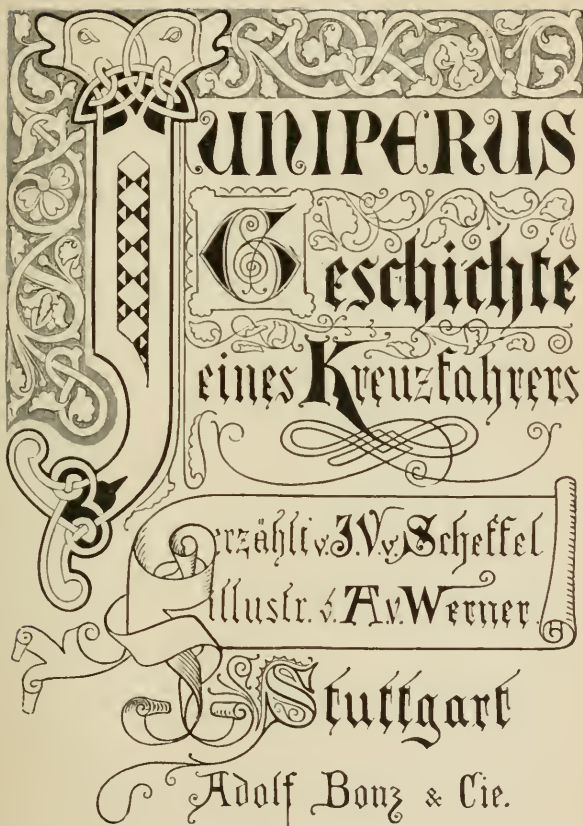 JUNIPERUS
Geschichte
eines Kreuzfahrers
erzählt v. J. V. v. Scheffel
illustr. v. A. v. Werner.
Stuttgart
Adolf Bonz & Cie.